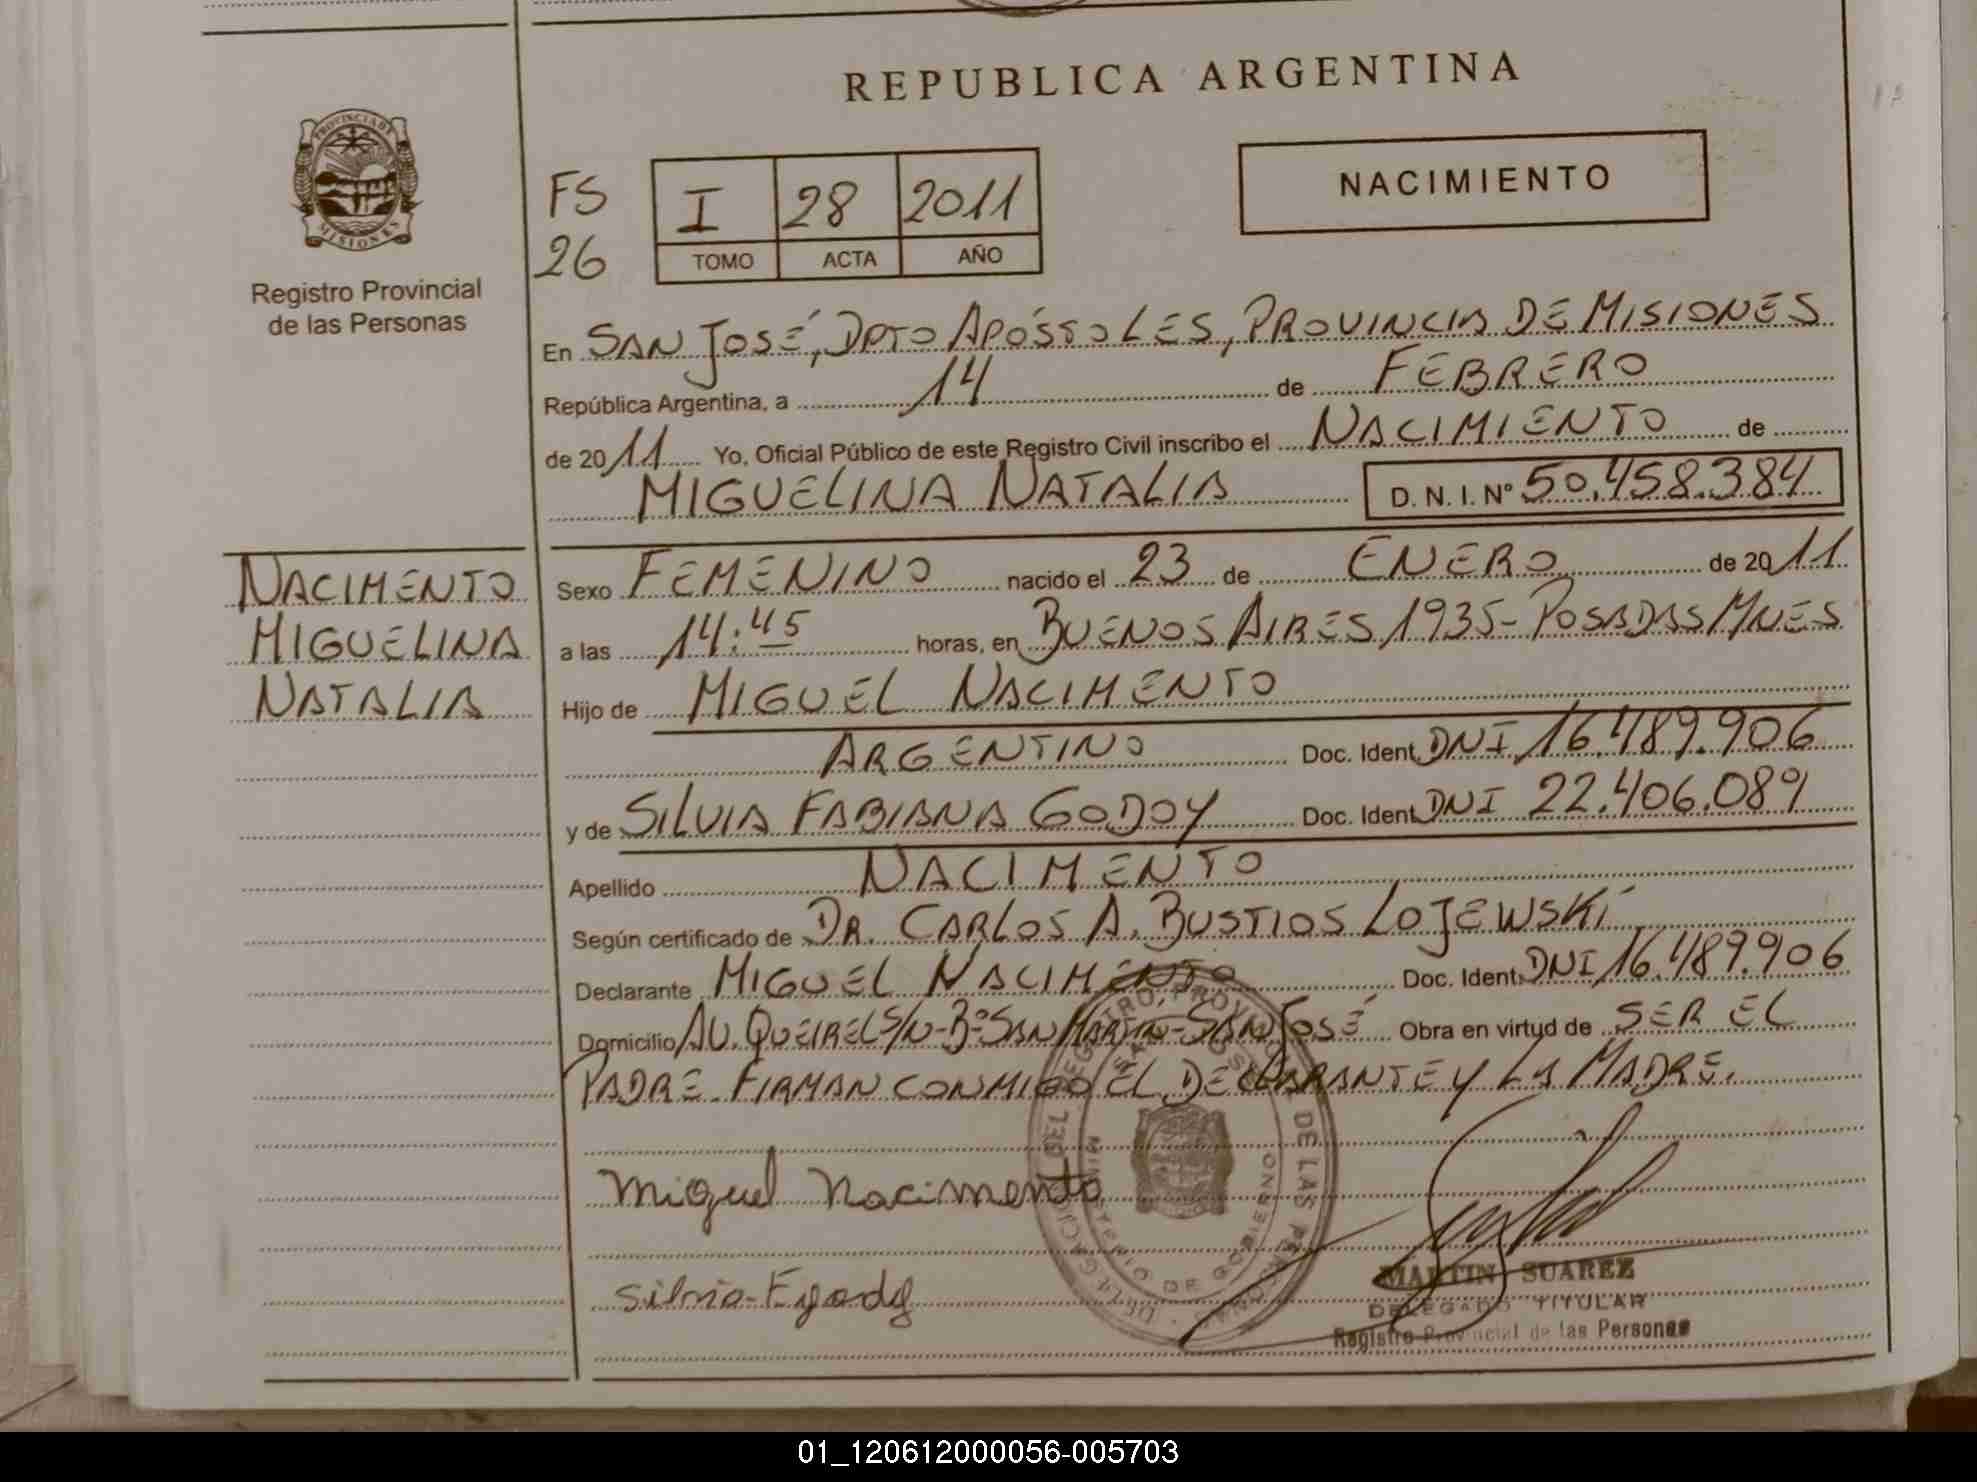 REPUBLICA ARGENTINA
PROVINCIA DE MISIONES
Registro Provincial
de las Personas
NACIMIENTO
FS
26
I 28 2011
TOMO ACTA AÑO
En SAN JOSÉ, DPTO APÓSTOLES, PROVINCIA DE MISIONES
República Argentina, a 14 de FEBRERO
de 2011 Yo, Oficial Público de este Registro Civil inscribo el NACIMIENTO de
MIGUELINA NATALIA D. N. I. Nº 50.458.384
NACIMENTO
MIGUELINA
NATALIA
Sexo FEMENINO nacido el 23 de ENERO de 2011
a las 14:45 horas, en BUENOS AIRES 1935- POSADAS MNES
Hijo de MIGUEL NACIMENTO
ARGENTINO Doc. Ident. DNI 16.489.906
y de SILVIA FABIANA GODOY Doc. Ident. DNI 22.406.089
Apellido NACIMENTO
Según certificado de DR. CARLOS A. BUSTIOS LOJEWSKI
Declarante MIGUEL NACIMENTO Doc. Ident. DNI 16.489.906
Domicilio AV. QUEIREL S/N-Bº SAN MARTIN-SAN JOSÉ Obra en virtud de SER EL
PADRE. FIRMAN CONMIGO EL DECLARANTE Y LA MADRE.
Miguel Nacimento
DELEGACION DEL REGISTRO PROVINCIAL DE LAS PERSONAS
SAN JOSE
MINISTERIO DE GOBIERNO
MARTIN SUAREZ
DELEGADO TITULAR
Registro Provincial de las Personas
01_120612000056-005703